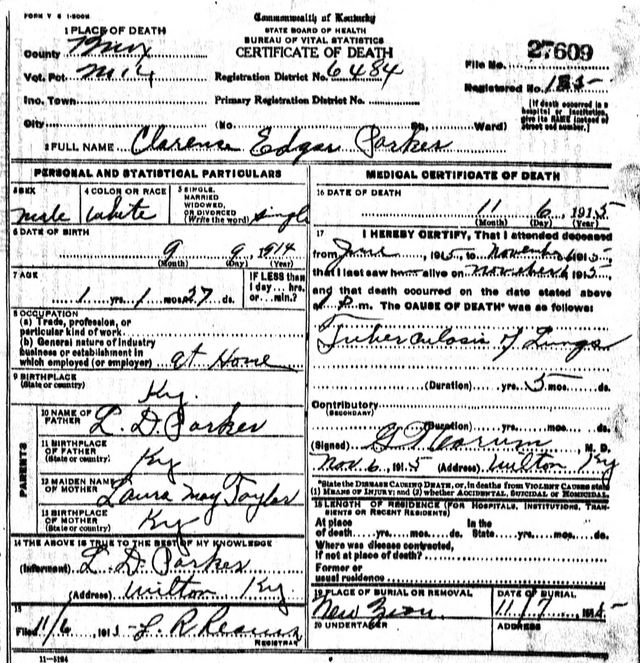 FORM V S 1-500M
Commonwealth of Kentucky
STATE BOARD OF HEALTH
BUREAU OF VITAL STATISTICS
CERTIFICATE OF DEATH
1 PLACE OF DEATH
County Knox
Vot. Pct.
Registration District No. 6484
File No. 27609
Registered No.
Inc. Town
Primary Registration District No.
City (No. St. Ward)
[If death occurred in a hospital or institution, give its NAME instead of street and number.]
2 FULL NAME Clarence Edgar Parker
PERSONAL AND STATISTICAL PARTICULARS
3 SEX male
4 COLOR OR RACE White
5 SINGLE, MARRIED WIDOWED, OR DIVORCED (Write the word) Single
6 DATE OF BIRTH
9 9 1914
(Month) (Day) (Year)
7 AGE
1 yrs. 1 mos. 27 ds.
IF LESS than 1 day ... hrs. or ... min.?
8 OCCUPATION
(a) Trade, profession, or particular kind of work
(b) General nature of industry business or establishment in which employed (or employer) at Home
9 BIRTHPLACE (State or country) Ky.
PARENTS
10 NAME OF FATHER L. D. Parker
11 BIRTHPLACE OF FATHER (State or country) Ky
12 MAIDEN NAME OF MOTHER Laura May Taylor
13 BIRTHPLACE OF MOTHER (State or country) Ky
14 THE ABOVE IS TRUE TO THE BEST OF MY KNOWLEDGE
(Informant) L. D. Parker
(Address) Wilton Ky
15
Filed 11/6 191 L R
REGISTRAR
11-5184
MEDICAL CERTIFICATE OF DEATH
16 DATE OF DEATH
11 6 1915
(Month) (Day) (Year)
17 I HEREBY CERTIFY, That I attended deceased
from June 1915, to November 6 1915
that I last saw h alive on November 6 1915
and that death occurred on the date stated above
at 1 P. m. The CAUSE OF DEATH* was as follows:
Tuberculosis of Lungs
(Duration) yrs. 5 mos. ds.
Contributory (SECONDARY)
(Duration) yrs. mos. ds.
(Signed) G T Corum M. D.
Nov. 6, 1915 (Address) Wilton Ky
*State the DISEASE CAUSING DEATH, or, in deaths from VIOLENT CAUSES state (1) MEANS OF INJURY; and (2) whether ACCIDENTAL, SUICIDAL OR HOMICIDAL.
18 LENGTH OF RESIDENCE (FOR HOSPITALS, INSTITUTIONS, TRANSIENTS OR RECENT RESIDENTS)
At place of death yrs. mos. ds. In the State yrs. mos. ds.
Where was disease contracted, if not at place of death?
Former or usual residence
19 PLACE OF BURIAL OR REMOVAL New Zion
DATE OF BURIAL 11/7 1915
20 UNDERTAKER
ADDRESS